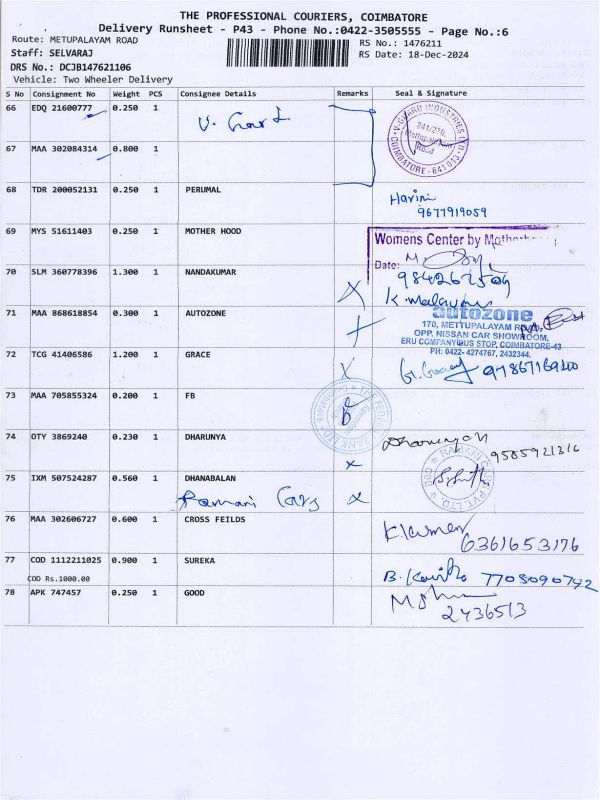 THE PROFESSIONAL COURIERS, COIMBATORE
Delivery Runsheet - P43 - Phone No.:0422-3505555 - Page No.:6
Route: METUPALAYAM ROAD
RS No.: 1476211
Staff: SELVARAJ
RS Date: 18-Dec-2024
DRS No.: DCJB147621106
Vehicle: Two Wheeler Delivery
S No Consignment No Weight PCS Consignee Details Remarks Seal & Signature
66 EDQ 21600777 0.250 1 V. Guard
V-GUARD INDUSTRIES LTD
241/270,
Mettupalayam
Road
COIMBATORE - 641 043
67 MAA 302084314 0.800 1
68 TDR 200052131 0.250 1 PERUMAL
Harini
9677919059
69 MYS 51611403 0.250 1 MOTHER HOOD
Womens Center by Motherhood
Date:
70 SLM 360778396 1.300 1 NANDAKUMAR X
K. malayans
71 MAA 868618854 0.300 1 AUTOZONE X
autozone
170, METTUPALAYAM ROAD,
OPP. NISSAN CAR SHOWROOM,
ERU COMPANY BUS STOP, COIMBATORE-43
PH: 0422- 4274767, 2432344.
72 TCG 41406586 1.200 1 GRACE X
73 MAA 705855324 0.200 1 FB
74 OTY 3869240 0.230 1 DHARUNYA X
9585921316
75 IXM 507524287 0.560 1 DHANABALAN X
Ramani Cars
76 MAA 302606727 0.600 1 CROSS FEILDS
6361653176
77 COD 1112211025 0.900 1 SUREKA
COD Rs.1000.00
7708090792
78 APK 747457 0.250 1 GOOD
2436513